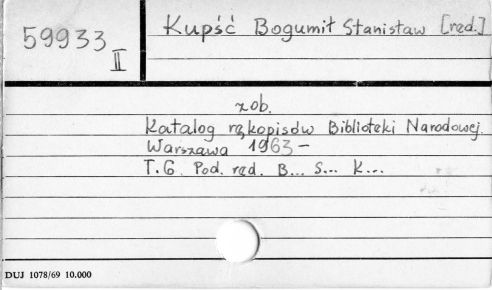 59933
II
Kupść Bogumił Stanisław [red.]
zob.
Katalog rękopisów Biblioteki Narodowej.
Warszawa 1963 –
T. 6. Pod. red. B... S... K...
DUJ 1078/69 10.000